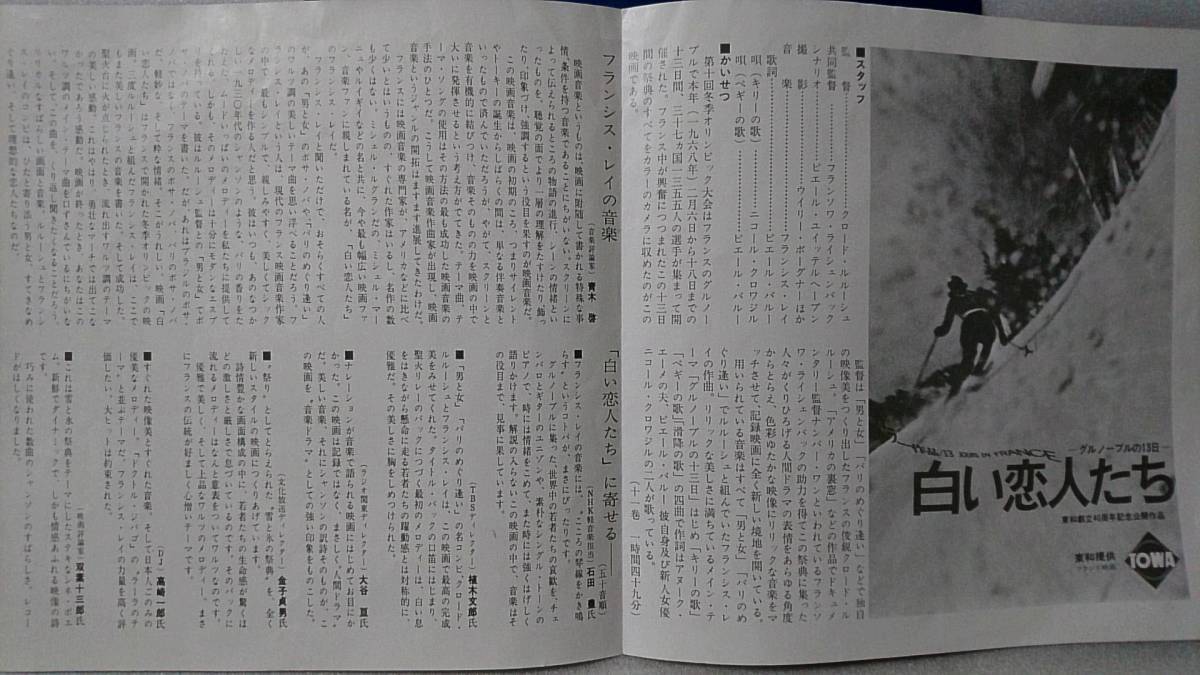 ■スタッフ
監督………………クロード・ルルーシュ
共同監督………フランソワ・ライシェンバック
シナリオ………ピエール・ユイッテルヘーブン
撮影……………ウイリー・ボーグナーほか
音楽………………フランシス・レイ
歌詞………………ピエール・バルー
唄（キリーの歌）………ニコール・クロワジル
唄（ペギーの歌）………ピエール・バルー
■かいせつ
第十回冬季オリンピック大会はフランスのグルノー
ブルで本年（一九六八年）二月六日から十八日までの
十三日間、三十七ヵ国一三五五人の選手が集まって開
催された。フランス中が興奮につつまれたこの十三日
間の祭典のすべてをカラーのカメラに収めたのがこの
映画である。
11/13 JOURS EN FRANCE
—グルノーブルの13日—
白い恋人たち
東和創立40周年記念公開作品
東和提供
フランス映画
TOWA
監督は「男と女」「パリのめぐり逢い」などで独自
の映像美をつくり出したフランスの俊鋭クロード・ル
ルーシュ。「アメリカの裏窓」などの作品でドキュメ
ンタリー監督ナンバー・ワンといわれているフランソ
ワ・ライシェンバックの助力を得てこの祭典に集った
人々がくりひろげる人間ドラマの表情をあらゆる角度
からとらえ、色彩ゆたかな映像にリリックな音楽をマ
ッチさせて、記録映画に全く新しい境地を開いている。
用いられている音楽はすべて「男と女」「パリのめ
ぐり逢い」でルルーシュと組んでいたフランシス・レ
イの作曲。リリックな美しさに満ちているメイン・テ
ーマ「グルノーブルの十三日」をはじめ「キリーの歌」
「ペギーの歌」「滑降の歌」の四曲で作詞はアヌーク・
エーメの夫、ピエール・バルー、彼自身及び新人女優
ニコール・クロワジルの二人が歌っている。
（十一巻　一時間四十九分）
フランシス・レイの音楽
（音楽評論家）青木 啓
映画音楽というものは、映画に附随して書かれる特殊な事
情、条件を持つ音楽であることにちがいない。スクリーンに
よって伝えられるところの物語の進行、シーンの情緒とい
ったものを、聴覚の面でより一層の理解をたすけたり、飾っ
たり、印象づけ、強調するという役目を果すのが映画音楽だ。
この映画音楽は、映画の初期のころ、つまりサイレント
やトーキーの誕生からしばらくの間は、単なる伴奏音楽と
いったもので済んでいただろうが、やがて、スクリーンと
音楽を有機的に結びつけ、音楽そのもの力を映画の中で
大いに発揮させるという考え方がでてきた。テーマ曲、テ
ーマ・ソングの使用はその方法の最も成功した映画音楽の
手法のひとつだ。こうして映画音楽作曲家が出現し、映画
音楽というジャンルの開拓はますます進展してきたわけだ。
フランスには映画音楽の専門家が、アメリカなどに比べ
て少いとはいうものの、すぐれた作家はいるし、名作の数
も少くはない。ミシェル・ルグランだの、ミシェル・マー
ニュやルイギイなどの名と共に、今や最も幅広い映画ファ
ン、音楽ファンに親しまれている名が、「白い恋人たち」の
フランシス・レイだ。
フランシス・レイと聞いただけで、おそらくすべての人
が、あの「男と女」のボサ・ノバや、「パリのめぐり逢い」
のワルツ調の美しいテーマ曲を思い浮べることだろう。フ
ランシス・レイという人は、現代のフランス映画音楽作家
の中で、最もシンプルで、親しみやすく、美しく、ロマンチッ
クなメロディーを作る人だと思う。彼はいつも、あのなつか
しい一九三〇年代のシャンソンのような、パリの香りをた
たえた、ムードいっぱいのメロディを私たちに提供して
くれる。しかも、そのメロディーは十分にモダンなエスプ
リを持っている。彼はルルーシュ監督との「男と女」でボ
サ・ノバのテーマを書いた。だが、あれはブラジルのボサ・
ノバではなく、フランスのボサ・ノバ、パリのボサ・ノバ
だ。軽妙な、そして小粋な情緒。そこがうれしい。映画「白
い恋人たち」は、フランスで開かれた冬季オリンピックの映
画。三度ルルーシュと組んだフランシス・レイは、ここで
もまた美しいフランスの音楽を書いた。そして成功した。
聖火台に火が点じられたとき、流れ出すワルツ調のテーマ
の美しい感動。これはやはり、勇壮なマーチでは出てこな
かったであろう感動だ。映画が終ったとき、あなたはこの
ワルツ調のテーマ曲を口ずさんでいるにちがいない。
そして、この曲を、くり返し聞きたくなることだろう。
リリカルなすばらしい画面と音楽。ルルーシュとフランシ
ス・レイのコンビは、ぴたりと寄り添う男と女、すてきなめ
ぐり逢い、そして理想的な恋人たちなのだ。
「白い恋人たち」に寄せる——
（五十音順）
（NHK軽音楽担当）石田 豊氏
■フランシス・レイの音楽には、“こころの琴線をかき鳴
らす”というコトバが、まさにぴったりです。
グルノーブルに集った、世界中の若者たちの哀歓を、チェ
ンバロとギターのユニゾンや、素朴なシングル・トーンの
ピアノで、時には情緒をこめて、また時には強くはげしく
語りかけます。解説の入らないこの映画の中で、音楽はそ
の役目まで、見事に果しています。
（TBSディレクター）植木文郎氏
■「男と女」「パリのめぐり逢い」の名コンビ、クロード・
ルルーシュとフランシス・レイは、この映画で最高の完成
美をみせてくれた。タイトル・バックの口笛にはじまり、
聖火リレーのバックに走る最初のメロディーは、白い息
をはきながら懸命に走る若者たちの躍動感とは対称的に、
優雅だ。その美しさに胸がしめつけられる。
（ラジオ関東ディレクター）大谷 亘氏
■ナレーションが音楽で語られる映画にはじめてお目にか
かった。この映画は記録ではなくまさしく“人間ドラマ”
だ。美しい音楽、それにシャンソンの訳詩そのものが、こ
の映画を“音楽ドラマ”としての強い印象をものこした。
（文化放送ディレクター）金子貞男氏
■“祭り”としてとらえられた“雪と氷の祭典”を、全く
新しいスタイルの映画につくりあげています。
詩情豊かな画面構成の中に、若者たちの生命感が驚くほ
どの激しさと厳しさで息づいているのです。そのバックに
流れるメロディーはなんと意表をついてワルツなのです。
優雅で美しく、そして上品なワルツのメロディー。まさ
にフランスの伝統が好ましく心憎いテーマです。
（DJ）高崎一郎氏
■すぐれた映像美とすぐれた音楽、そして日本人ごのみの
優美なメロディー。「ドクトル・ジバゴ」の、“ララのテ
ーマ”と並ぶテーマだ。フランシス・レイの力量を高く評
価したい。大ヒットは約束された。
（映画評論家）双葉十三郎氏
■これは雪と氷の祭典をテーマにしたステキなシネ・ポエ
ム。新鮮でダイナミックで、しかも情感あふれる映像の詩
です。
巧みに使われた数曲のシャンソンのすばらしさ。レコー
ドがほしくなりました。